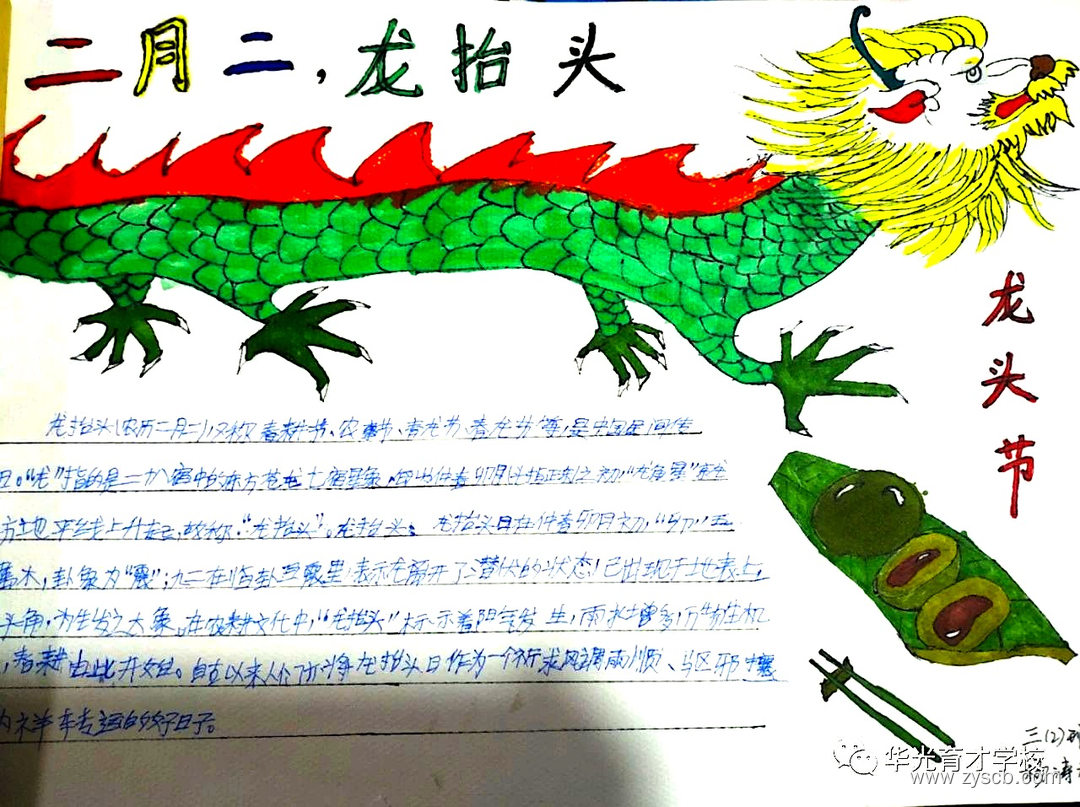 二月二,龙抬头
龙头节
龙抬头(农历二月二),又称春耕节、农事节、青龙节、春龙节等,是中国民间传
日。“龙”指的是二十八宿中的东方苍龙七宿星象,每岁仲春卯月(斗指正东)之初,“龙角星”就从
方地平线上升起,故称:“龙抬头”。龙抬头 龙抬头日在仲春卯月初,“卯”五
属木,卦象为“震”;九二在临卦互震里,表示龙离开了潜伏的状态,已出现于地表上,
头角,为生发之大象。在农耕文化中,“龙抬头”标示着阳气发生,雨水增多,万物生机
,春耕由此开始。自古以来人们亦将龙抬头日作为一个祈求风调雨顺、驱邪攘
纳祥转运的好日子。
三(2)班
涛
华光育才学校
www.zyscb.com